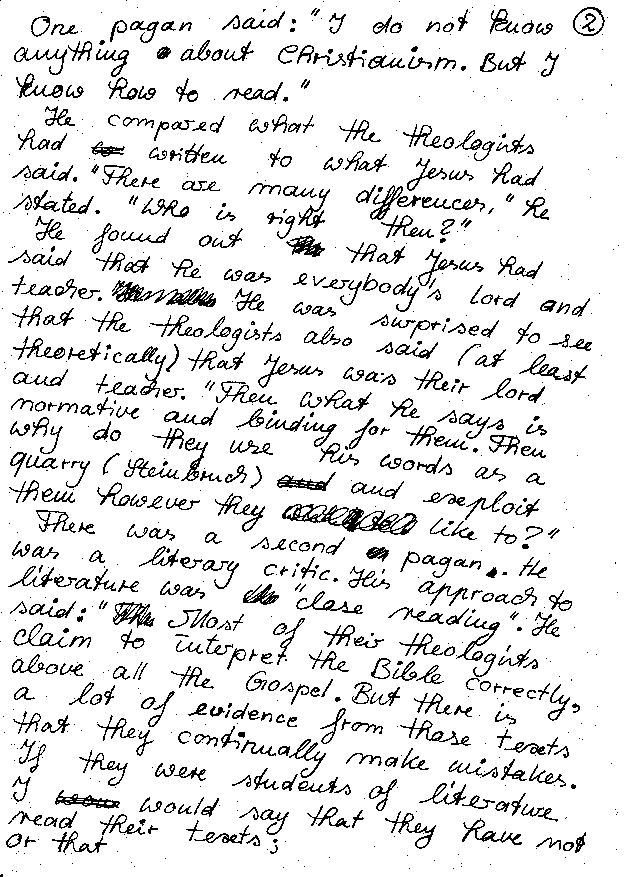 One pagan said: "I do not know ②
anything about Christianism. But I
know how to read."
He compared what the theologists
had written to what Jesus had
said. "There are many differences," he
stated. "Who is right then?"
He found out that Jesus had
said that he was everybody's lord and
teacher. He was surprised to see
that the theologists also said (at least
theoretically) that Jesus was their lord
and teacher. "Then what he says is
normative and binding for them. Then
why do they use his words as a
quarry (Steinbruch) and exeploit
them however they like to?"
There was a second pagan. He
was a literary critic. His approach to
literature was "close reading". He
said: "Most of their theologists
claim to interpret the Bible correctly,
above all the Gospel. But there is
a lot of evidence from those texets
that they continually make mistakes.
If they were students of literature
I would say that they have not
read their texets;
or that